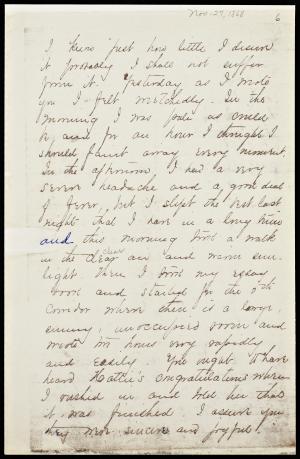 Nov. 29, 1868
6
I know just how little I deserve
it probably I shall not suffer
from it. Yesterday as I wrote
you I felt wretchedly. In the
morning I was pale as could
be, and for an hour I thought I
should faint away every moment.
In the afternoon I had a very
severe headache and a good deal
of fever, but I slept the best last
night that I have in a long time
and this morning took a walk
in the clear air and warm sun-
light. Then I took my essay
book and started for the 5th
corridor where there is a large,
sunny, unoccupied room and
wrote hours very rapidly
and easily. You ought to have
heard Hattie's congratulations when
I rushed in and told her that
it was finished I assure you
they were sincere and joyful!